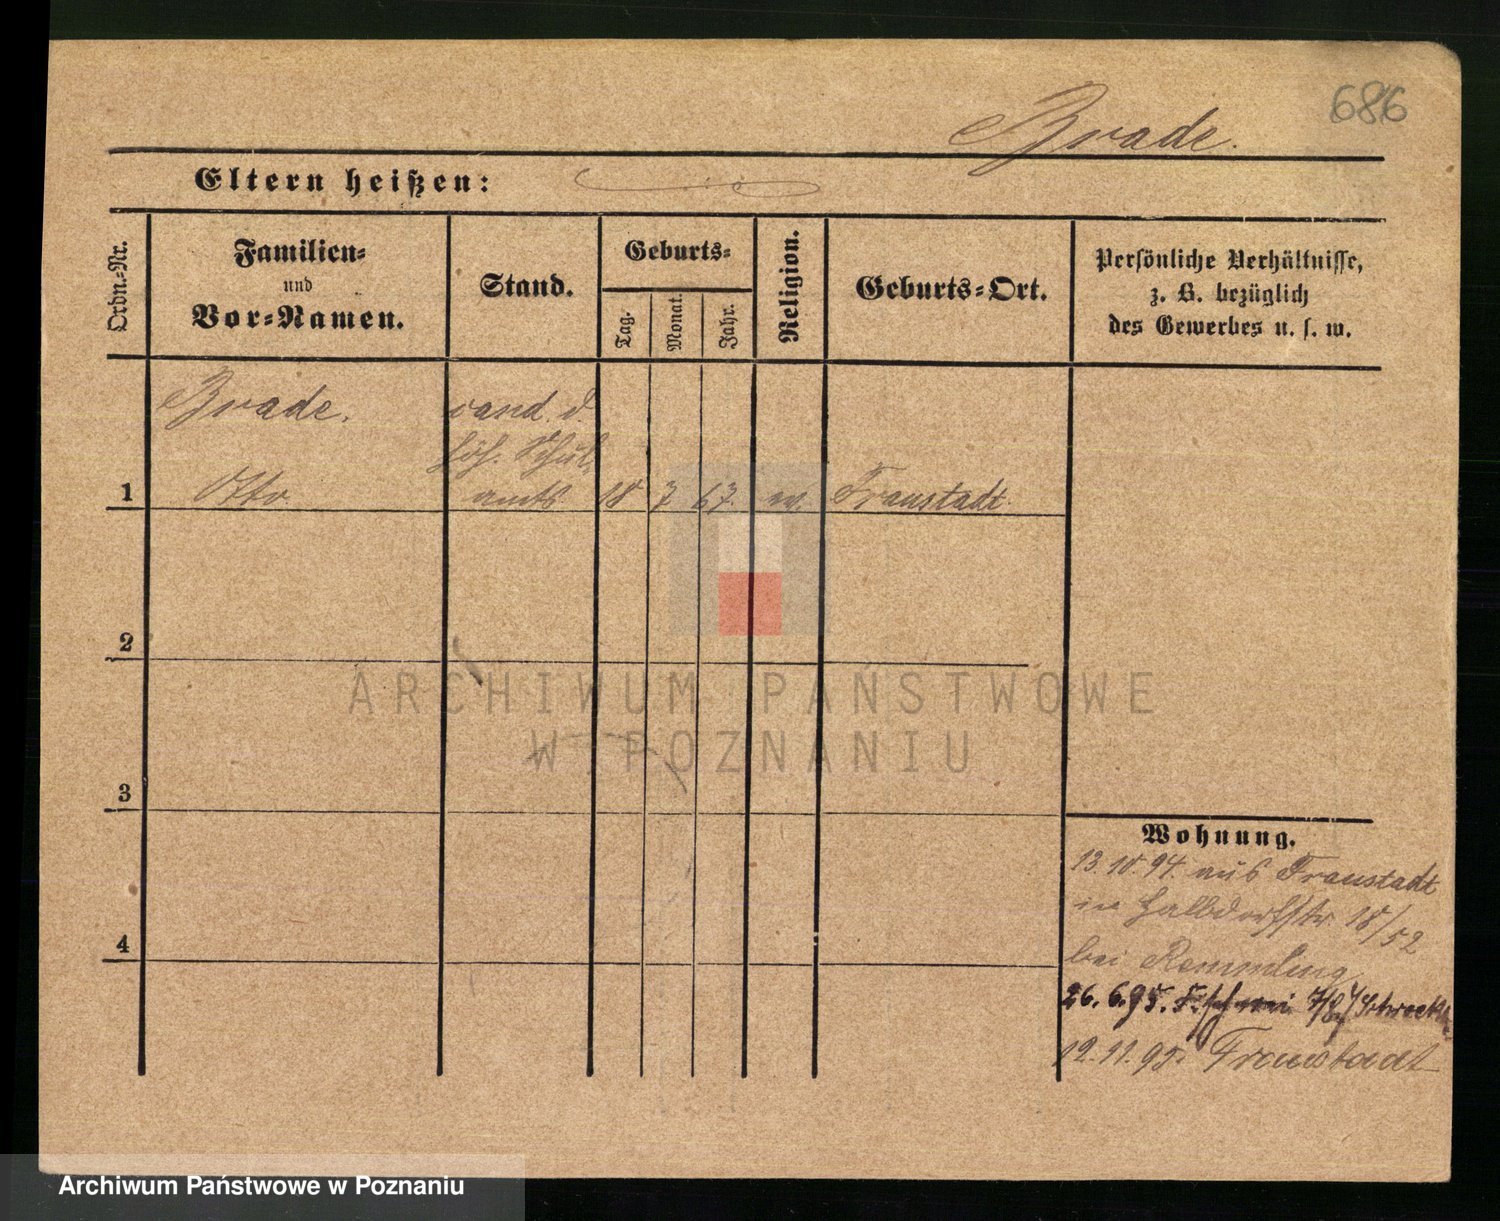 686
Brade.
Eltern heißen:
Ordn.=Nr.
Familien=
und
Vor=Namen.
Stand.
Geburts=
Tag.
Monat.
Jahr.
Religion.
Geburts=Ort.
Persönliche Verhältnisse,
z. B. bezüglich
des Gewerbes u. s. w.
Brade.
cand. d.
höh. Schul
1 Otto amts 18 7 67. ev. Fraustadt.
2
ARCHIWUM PAŃSTWOWE
W POZNANIU
3
Wohnung.
13.10.94. aus Fraustadt
in Halbdorfstr. 18/52
bei Remmling
4
26.6.95.
12.11.95. Fraustadt
Archiwum Państwowe w Poznaniu